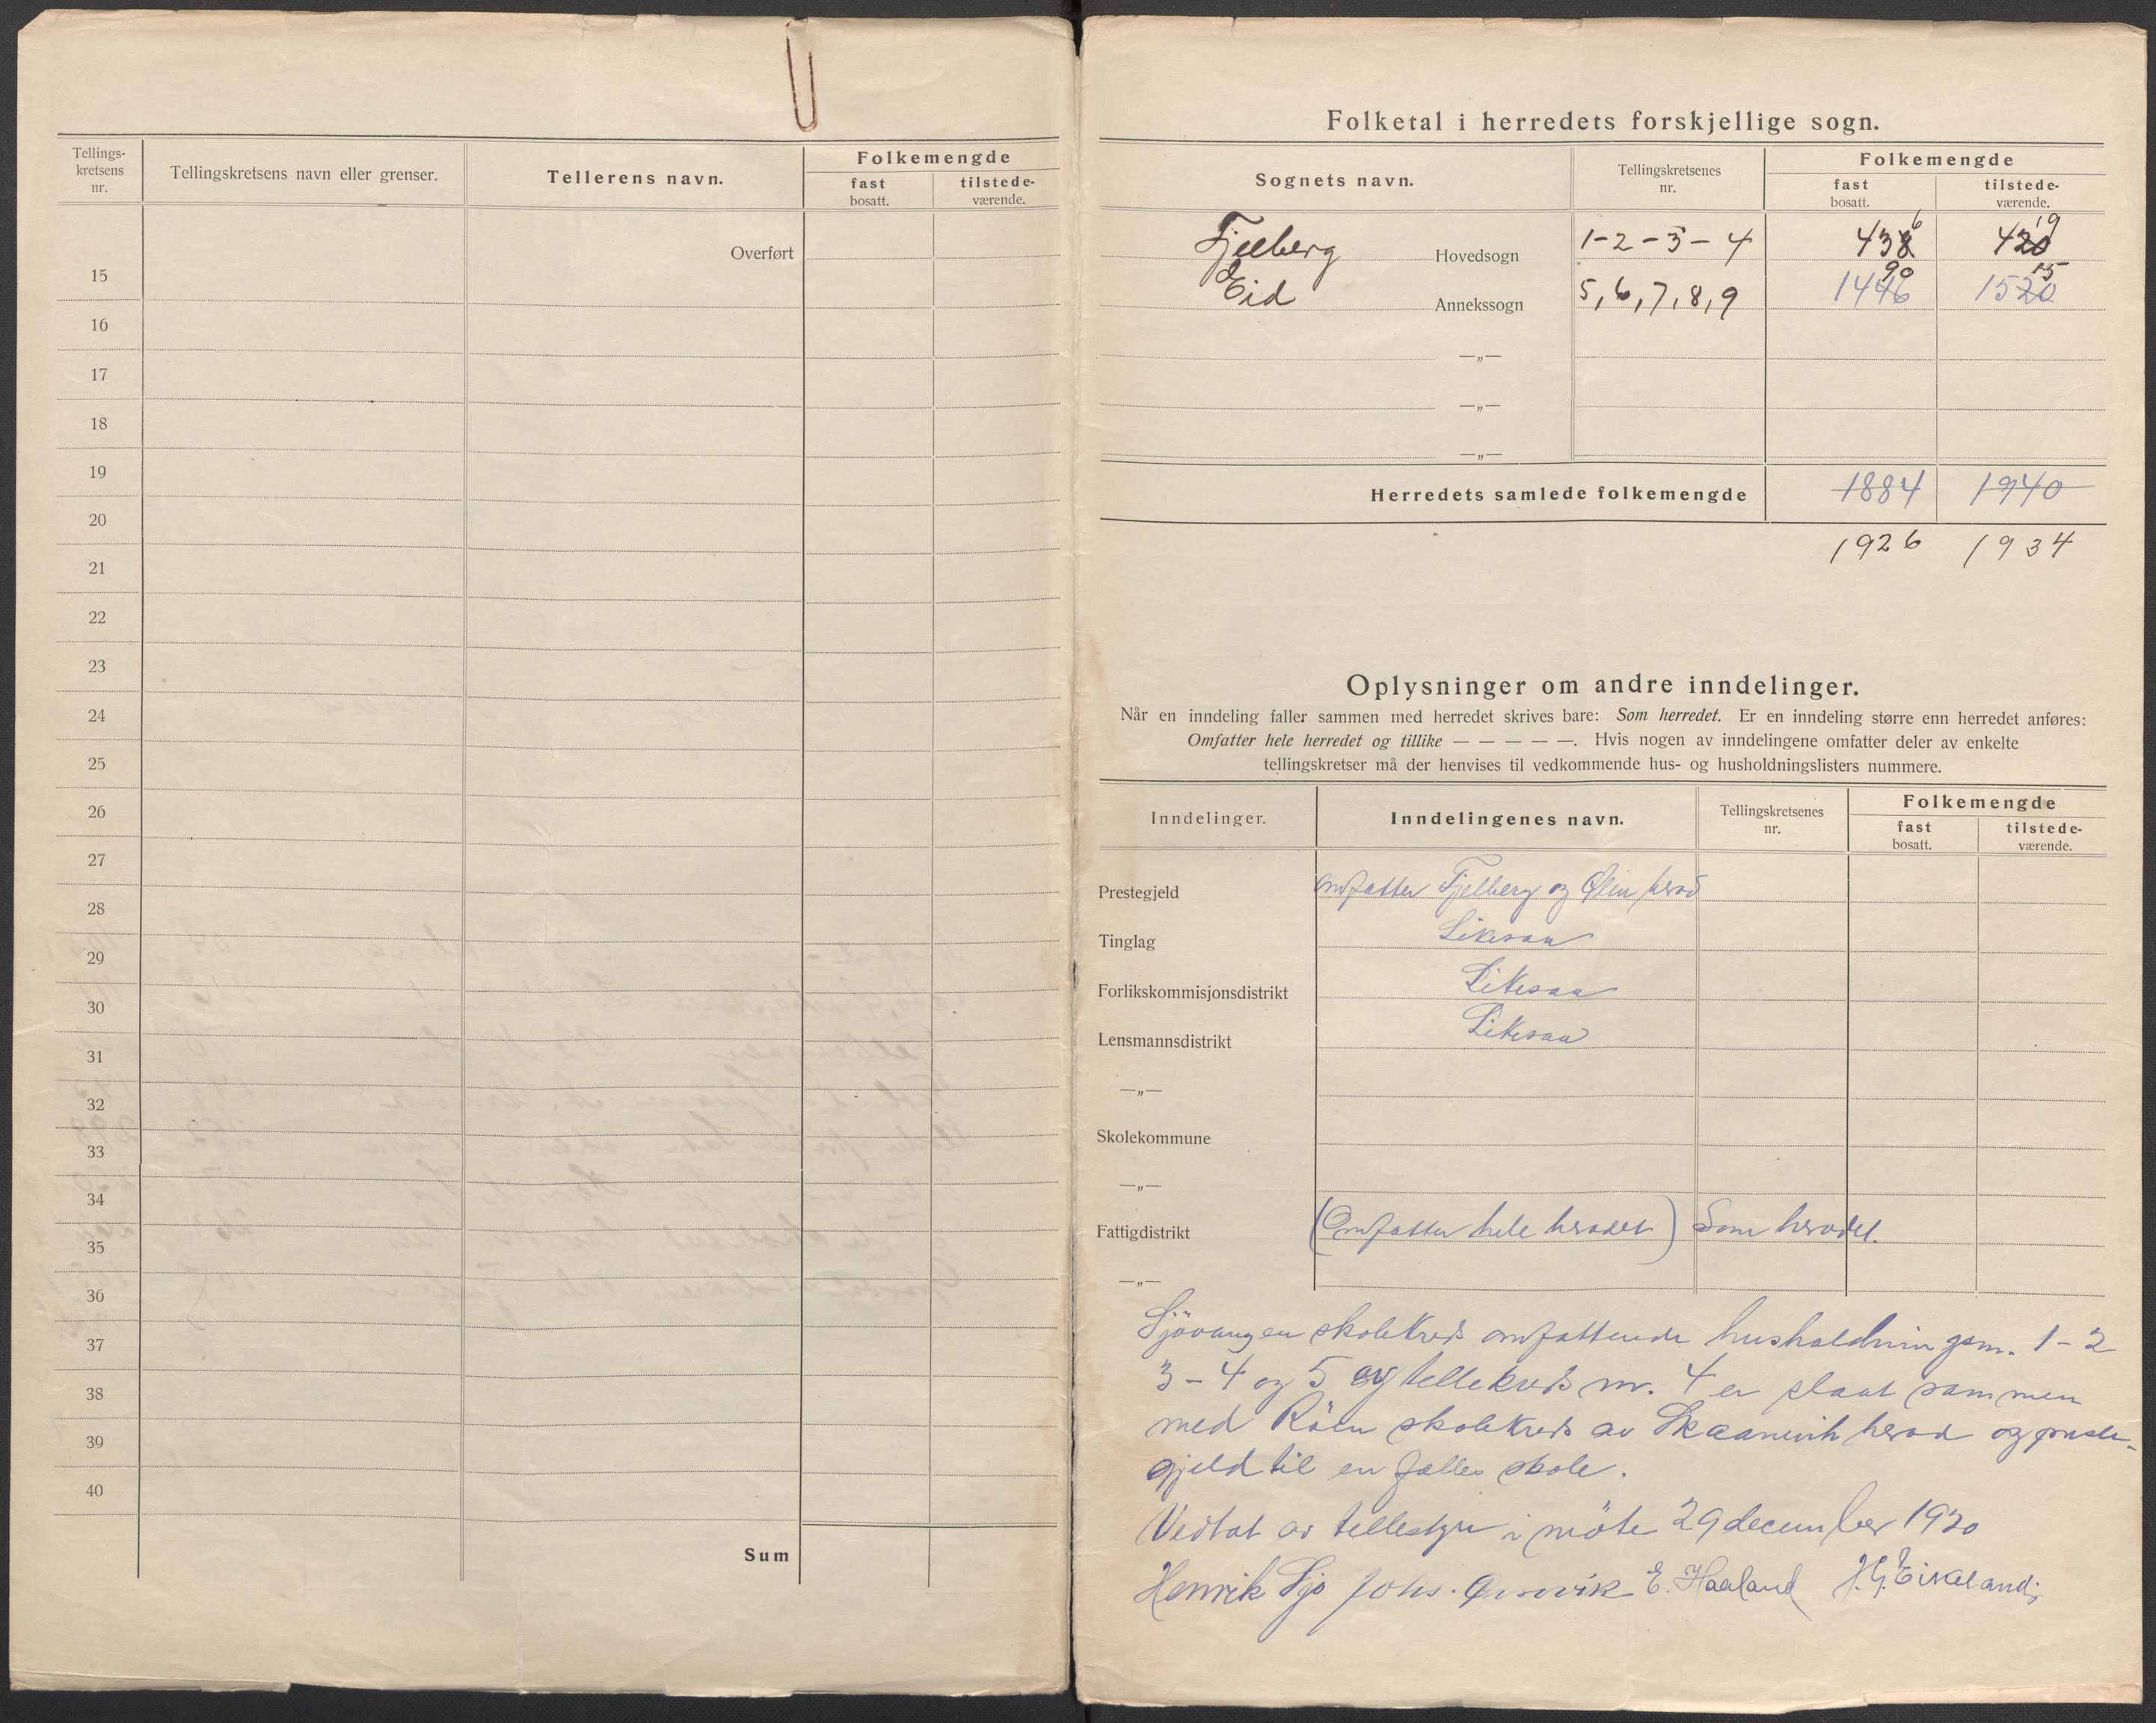 Tellings-
kretsens
nr.
Tellingskretsens navn eller grenser.
Tellerens navn.
Folkemengde
fast
bosatt.
tilstede-
værende.
Overført
15
16
17
18
19
20
21
22
23
24
25
26
27
28
29
30
31
32
33
34
35
36
37
38
39
40
Sum
Folketal i herredets forskjellige sogn.
Sognets navn.
Tellingskretsenes
nr.
Folkemengde
fast
bosatt.
tilstede-
værende.
Fjelberg Hovedsogn 1-2-3-4 438 6 420 19
Eid Annekssogn 5, 6, 7, 8, 9 1446 90 1520 15
—„—
—„—
—„—
Herredets samlede folkemengde 1884 1940
1926 1934
Oplysninger om andre inndelinger.
Når en inndeling faller sammen med herredet skrives bare: Som herredet. Er en inndeling større enn herredet anføres:
Omfatter hele herredet og tillike — — — — —. Hvis nogen av inndelingene omfatter deler av enkelte
tellingskretser må der henvises til vedkommende hus- og husholdningslisters nummere.
Inndelinger.
Inndelingenes navn.
Tellingskretsenes
nr.
Folkemengde
fast
bosatt.
tilstede-
værende.
Prestegjeld omfatter Fjelberg og Ølen herad
Tinglag Likesaa
Forlikskommisjonsdistrikt Likesaa
Lensmannsdistrikt Likesaa
—„—
Skolekommune
—„—
Fattigdistrikt (Omfatter hele heradet) Som heradet.
—„—
skolekreds omfattende 1-2
3-4 og 5 av tellekreds nr. 4 er slaat sammen
med Röen skolekreds av Skaanevik herad og preste-
gjeld til en fælles skole.
Vedtat av tellestyre i möte 29 december 1920
Henrik Sjo Johs. E. Haaland J. G. Eikeland